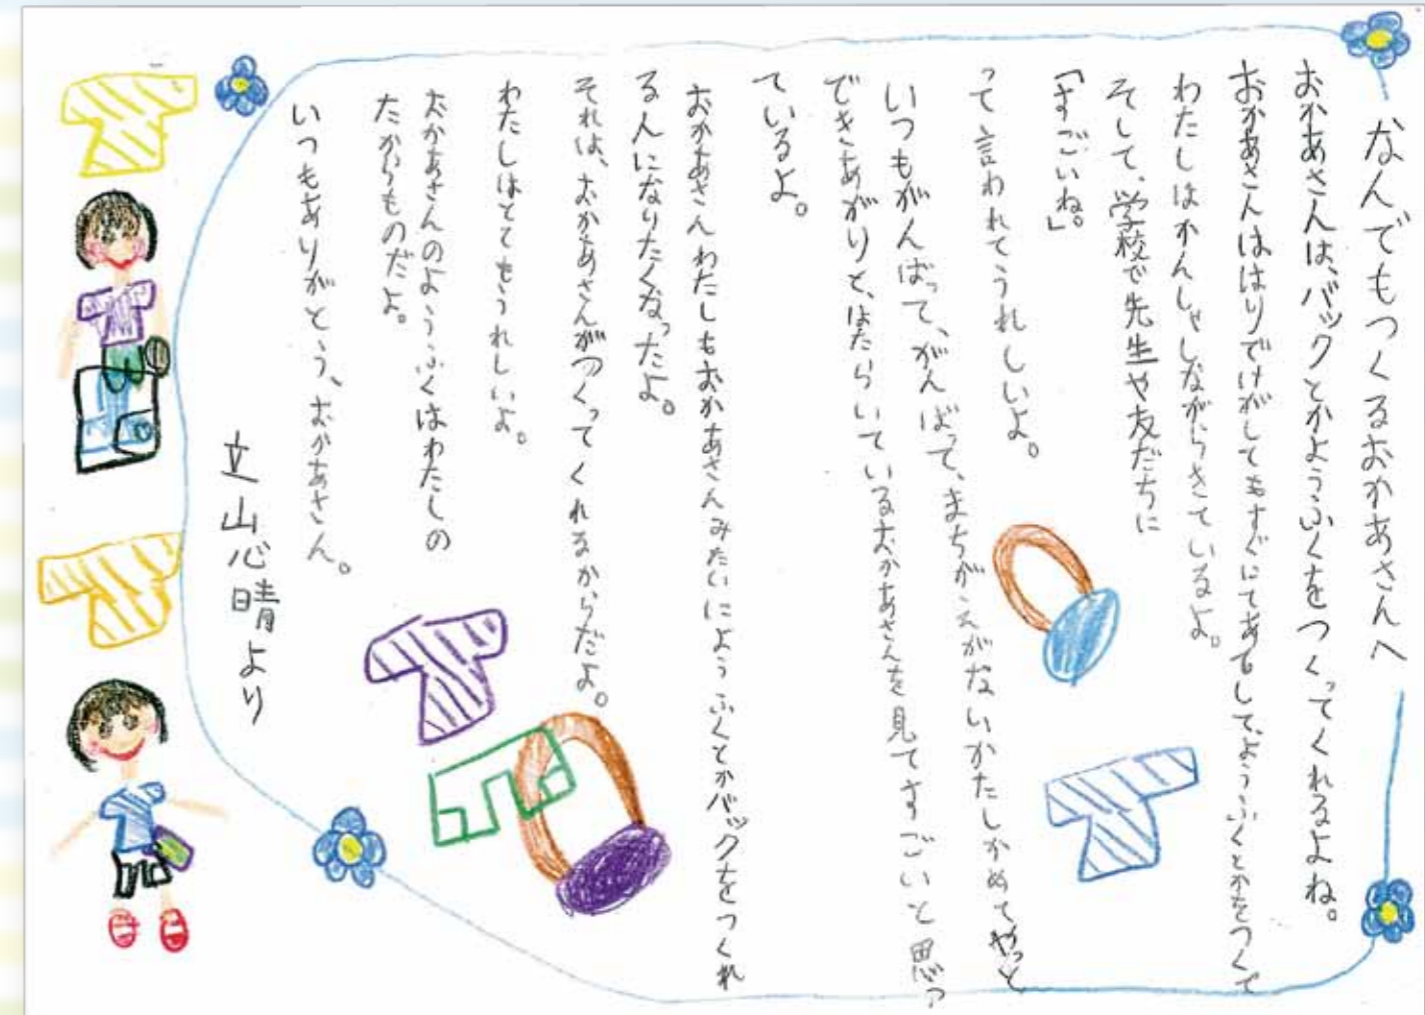 なんでもつくるおかあさんへ
おかあさんは、バックとかようふくをつくってくれるよね。
おかあさんははりでけがしてもすぐにてあてして、ようふくとかをつくて
わたしはかんしゃしながらきているよ。
そして、学校で先生や友だちに
「すごいね。」
って言われてうれしいよ。
いつもがんばって、がんばって、まちがえがないかたしかめてやっと
できあがりと、はたらいているおかあさんを見てすごいと思っ
ているよ。
おかあさんわたしもおかあさんみたいにようふくとかバックをつくれ
る人になりたくなったよ。
それは、おかあさんがつくってくれるからだよ。
わたしはとてもうれしいよ。
おかあさんのようふくはわたしの
たからものだよ。
いつもありがとう、おかあさん。
立山心晴より